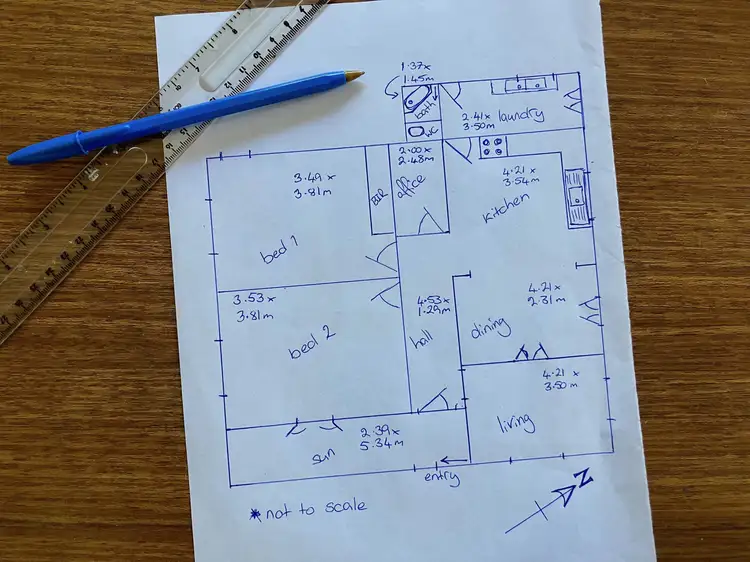 1.37x
1.45m
bath
WC
2.41x
3.50m
laundry
2.00x
2.48m
office
BIR
3.49x
3.81m
bed 1
4.21x
3.54m
kitchen
3.53x
3.81m
bed 2
4.53x
1.29m
hall
4.21x
2.31m
dining
4.21x
3.50m
living
2.39x
5.34m
sun
entry
N
*not to scale